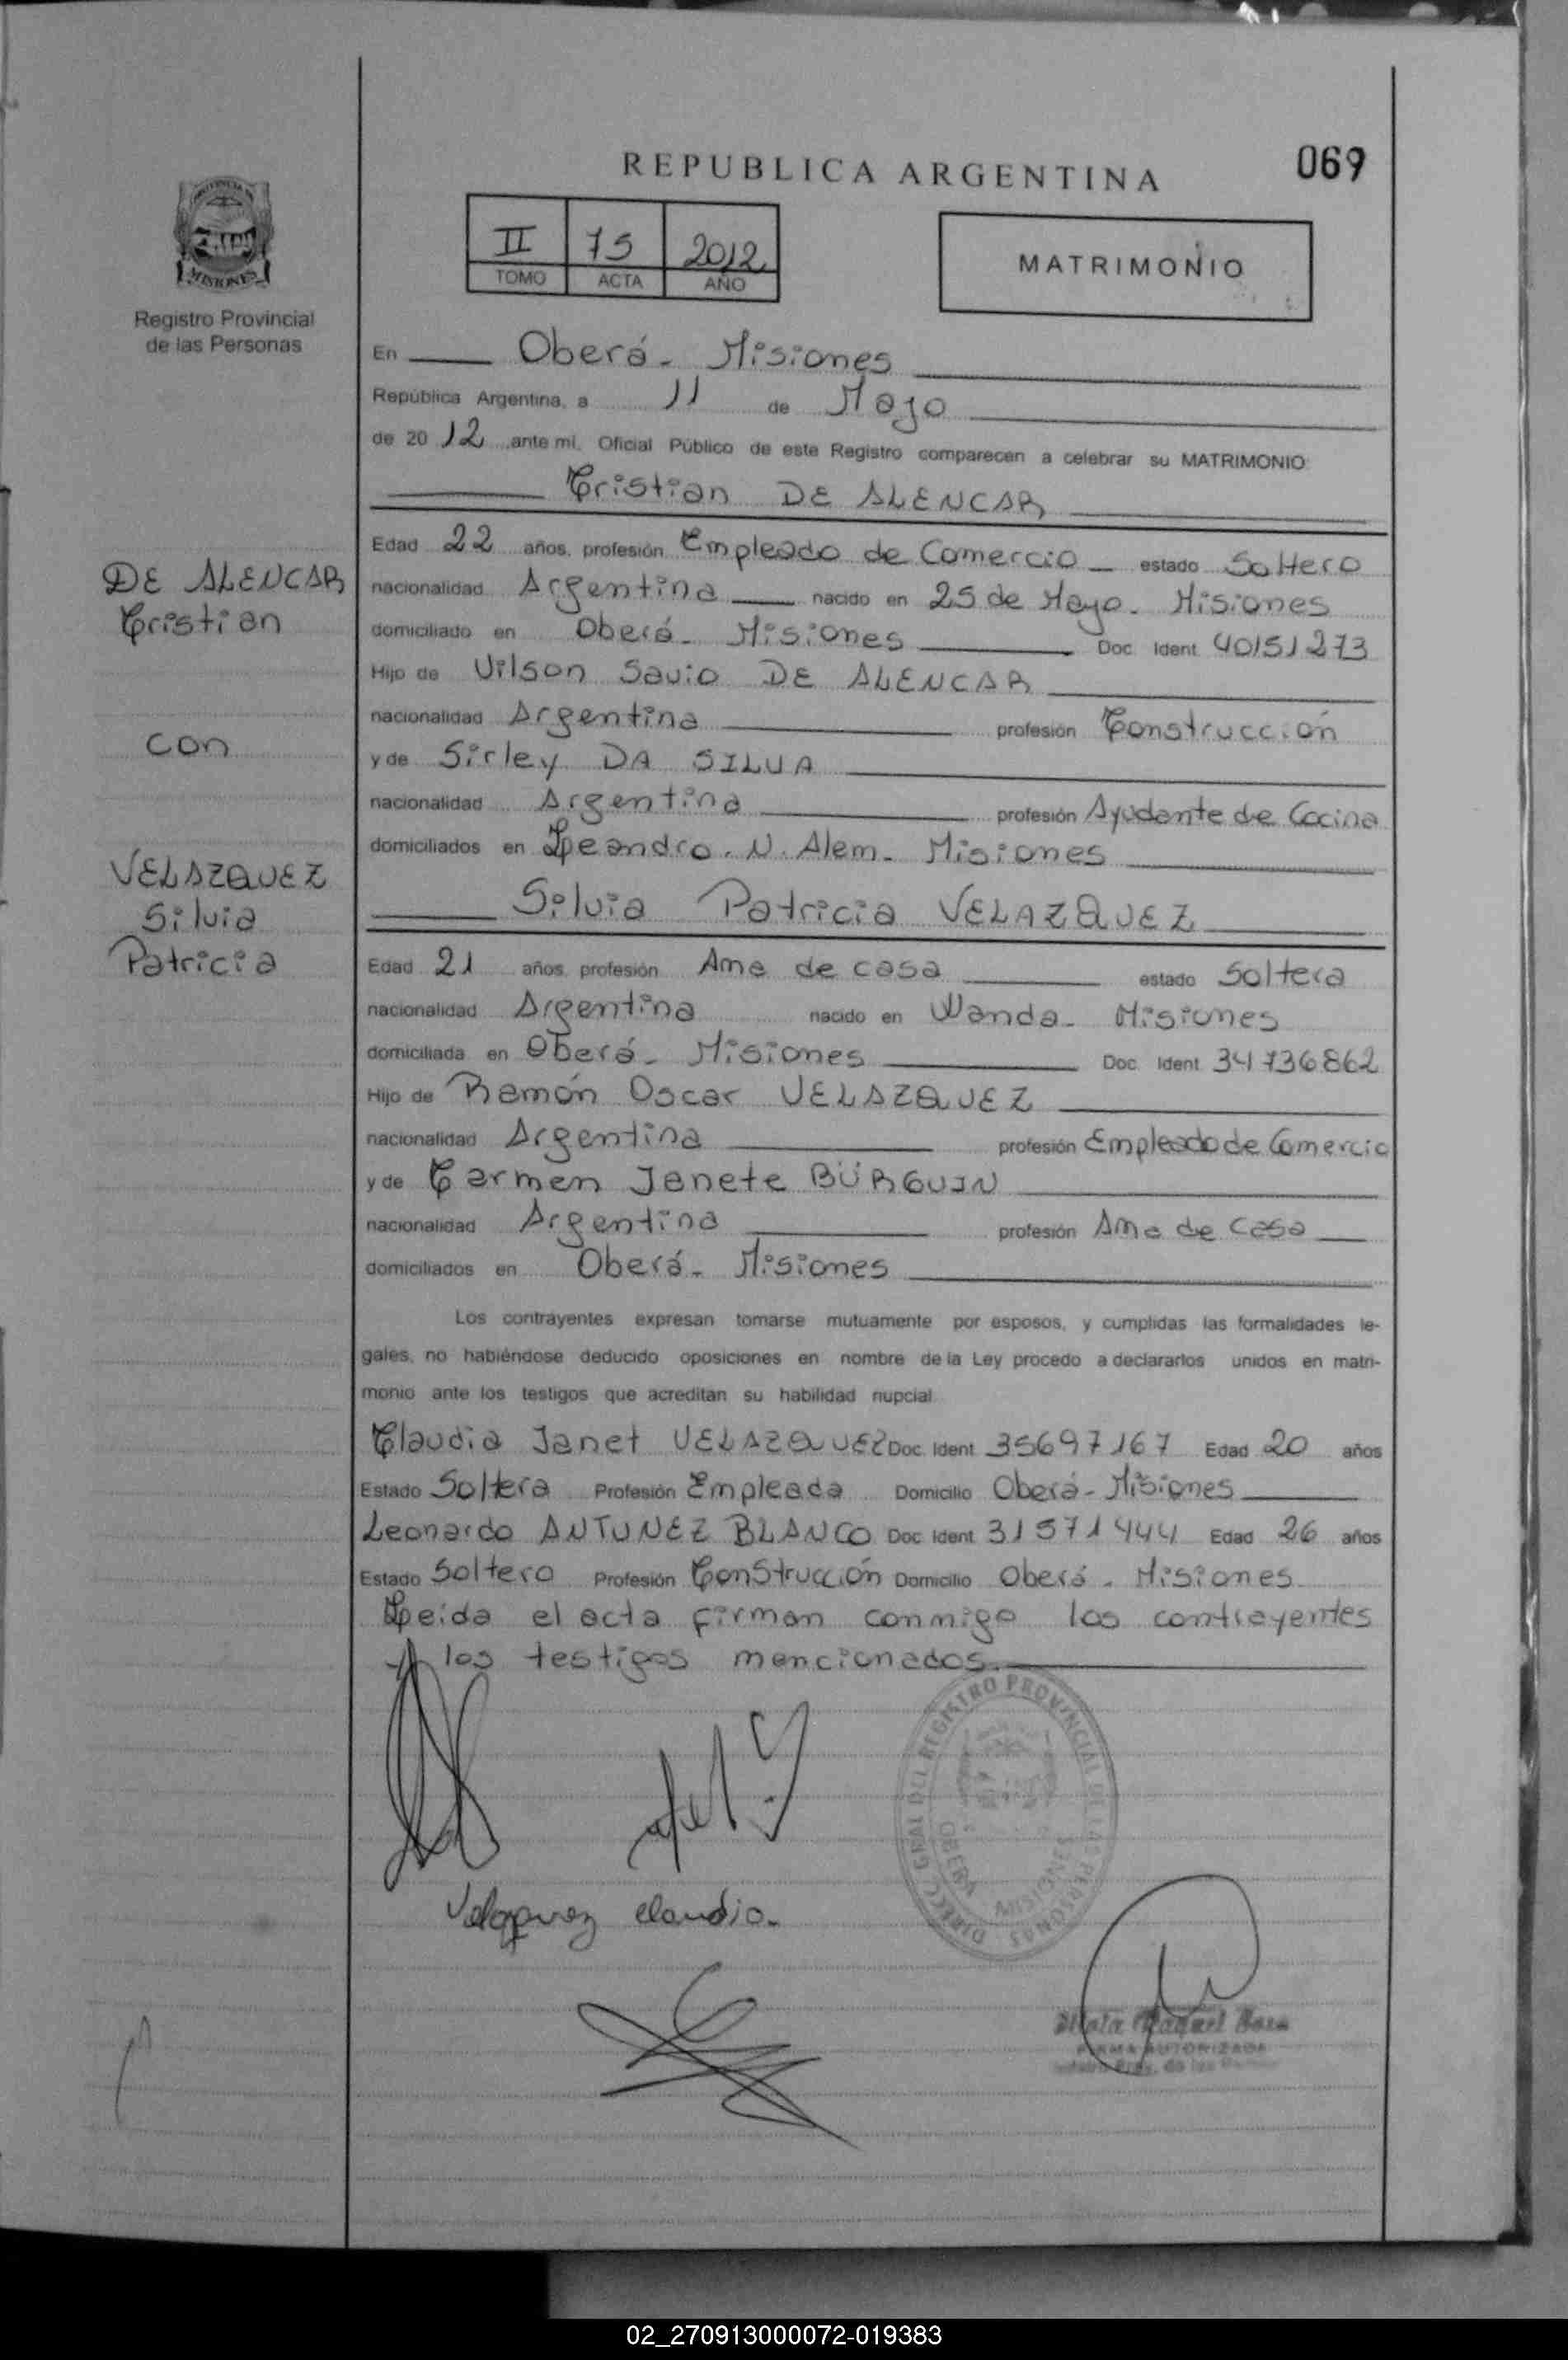 REPUBLICA ARGENTINA
069
II 75 2012
TOMO ACTA AÑO
MATRIMONIO
MISIONES
Registro Provincial
de las Personas
En Oberá - Misiones
República Argentina, a 11 de Mayo
de 2012 ante mí, Oficial Público de este Registro comparecen a celebrar su MATRIMONIO:
Cristian DE ALENCAR
DE ALENCAR
Cristian
con
VELAZQUEZ
Silvia
Patricia
Edad 22 años, profesión Empleado de Comercio estado Soltero
nacionalidad Argentina nacido en 25 de Mayo - Misiones
domiciliado en Oberá - Misiones Doc. Ident 40151273
Hijo de Vilson Savio DE ALENCAR
nacionalidad Argentina profesión Construcción
y de Sirley DA SILVA
nacionalidad Argentina profesión Ayudante de Cocina
domiciliados en Leandro. N. Alem - Misiones
Silvia Patricia VELAZQUEZ
Edad 21 años, profesión Ama de casa estado Soltera
nacionalidad Argentina nacido en Wanda - Misiones
domiciliada en Oberá - Misiones Doc. Ident 34736862
Hijo de Ramón Oscar VELAZQUEZ
nacionalidad Argentina profesión Empleado de Comercio
y de Carmen Janete BÜRGUIN
nacionalidad Argentina profesión Ama de Casa
domiciliados en Oberá - Misiones
Los contrayentes expresan tomarse mutuamente por esposos, y cumplidas las formalidades le-
gales, no habiéndose deducido oposiciones en nombre de la Ley procedo a declararlos unidos en matri-
monio ante los testigos que acreditan su habilidad nupcial
Claudia Janet VELAZQUEZ Doc. Ident 35697167 Edad 20 años
Estado Soltera Profesión Empleada Domicilio Oberá - Misiones
Leonardo ANTUNEZ BLANCO Doc Ident 31571444 Edad 26 años
Estado Soltero Profesión Construcción Domicilio Oberá - Misiones
Leída el acta firman conmigo los contrayentes
y los testigos mencionados.
DIREC. GRAL DEL REGISTRO PROVINCIAL DE LAS PERSONAS
OBERA MISIONES
Velazquez Claudia.
FIRMA AUTORIZADA
02_270913000072-019383